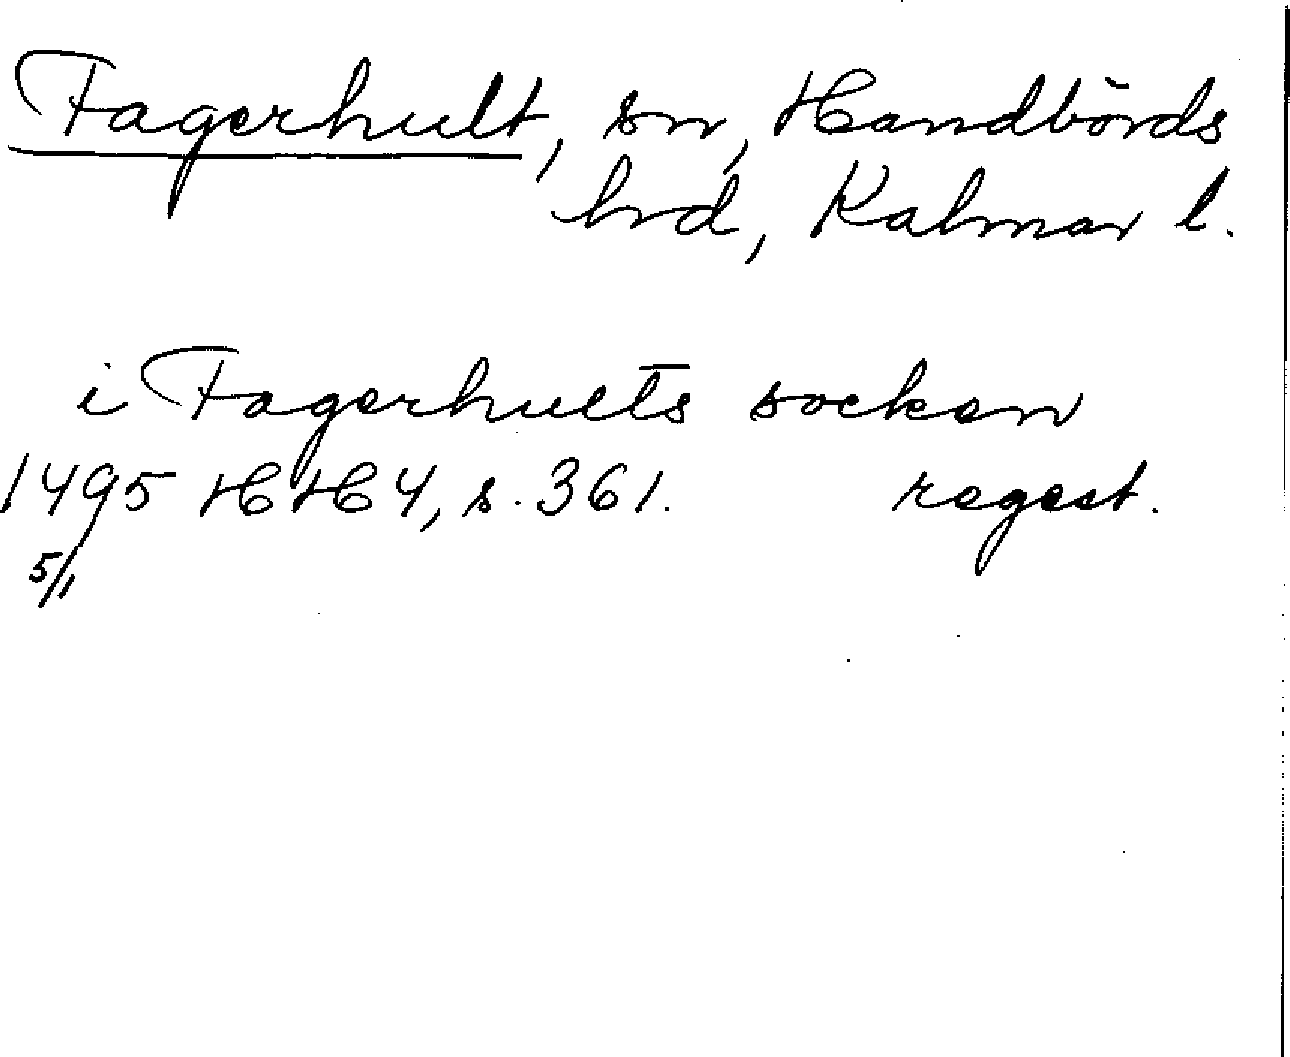 Fagerhult, sn, Handbörds
hrd, Kalmar l.
i Fagerhults socken
1495 HH 4, s. 361. regest.
5/1